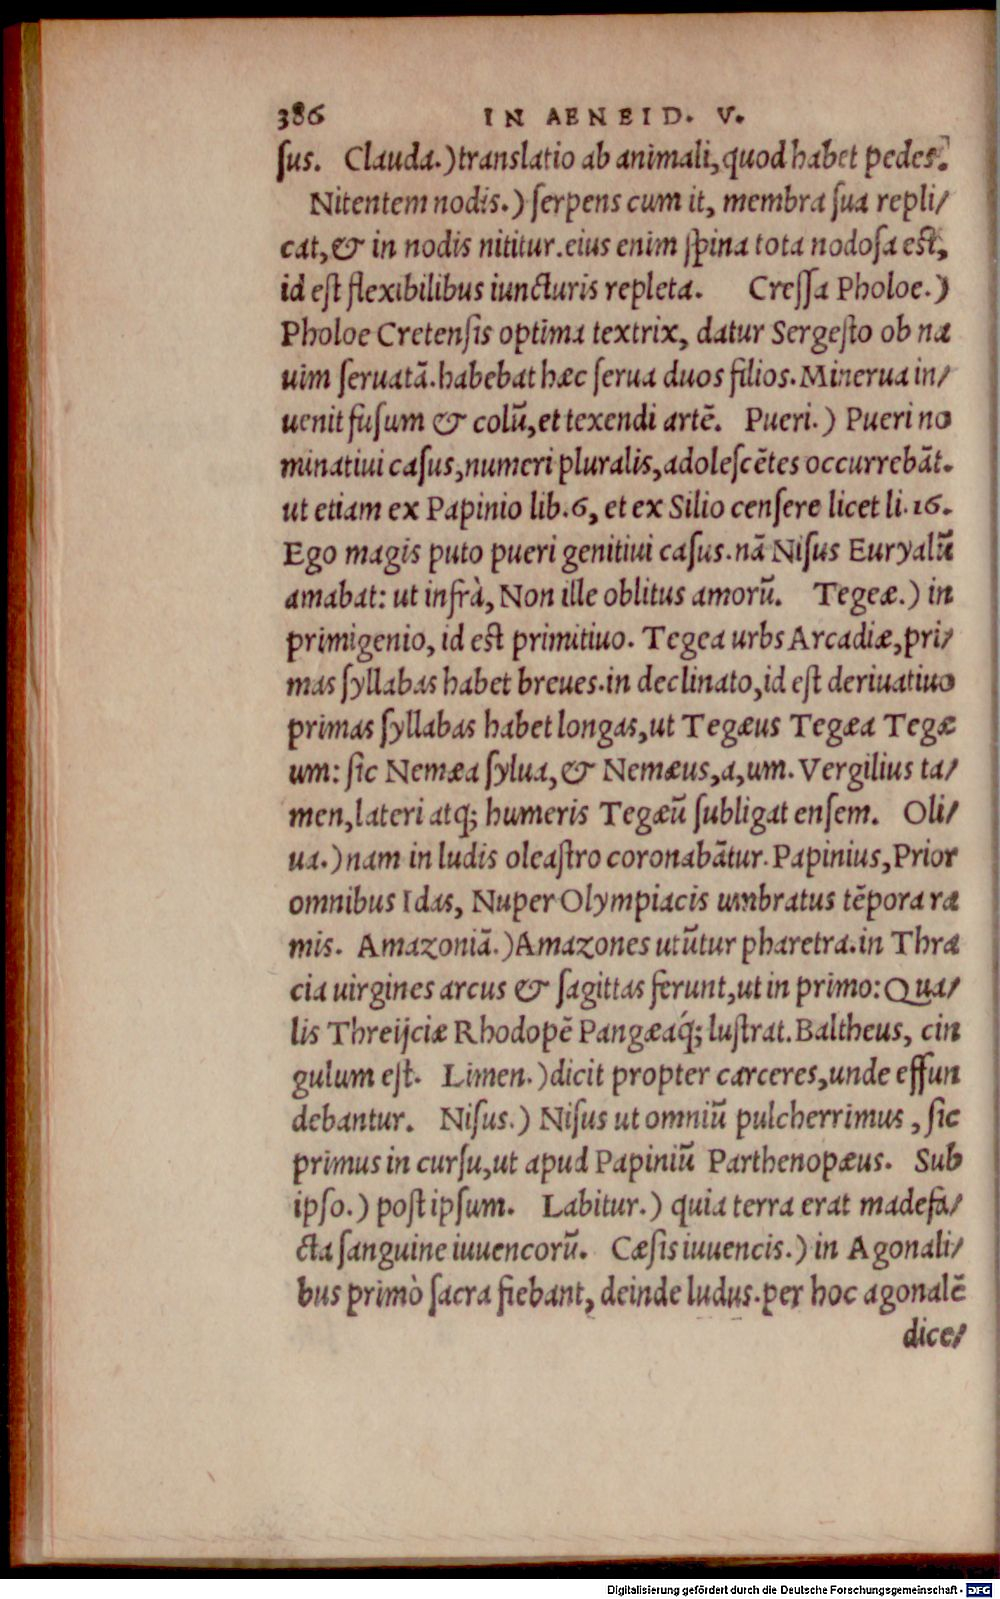 386 IN AENEID. V.
ſus. Clauda.) translatio ab animali, quod habet pedes.
Nitentem nodis.) ſerpens cum it, membra ſua repli/
cat, & in nodis nititur. eius enim ſpina tota nodoſa eſt,
id eſt flexibilibus iuncturis repleta. Creſſa Pholoe.)
Pholoe Cretenſis optima textrix, datur Sergeſto ob na
uim ſeruatã. habebat hæc ſerua duos filios. Minerua in/
uenit fuſum & colũ, et texendi artẽ. Pueri.) Pueri no
minatiui caſus, numeri pluralis, adoleſcẽtes occurrebãt.
ut etiam ex Papinio lib. 6, et ex Silio cenſere licet li. 16.
Ego magis puto pueri genitiui caſus. nã Niſus Euryalũ
amabat: ut infrà, Non ille oblitus amorũ. Tegeæ.) in
primigenio, id est primitiuo. Tegea urbs Arcadiæ, pri/
mas ſyllabas habet breues. in declinato, id eſt deriuatiuo
primas ſyllabas habet longas, ut Tegæus Tegæa Tegæ
um: ſic Nemæa ſylua, & Nemæus, a, um. Vergilius ta/
men, lateri atq; humeris Tegæũ ſubligat enſem. Oli/
ua.) nam in ludis oleaſtro coronabãtur. Papinius, Prior
omnibus Idas, Nuper Olympiacis umbratus tẽpora ra
mis. Amazoniã.) Amazones utũtur pharetra. in Thra
cia uirgines arcus & ſagittas ferunt, ut in primo: Qua/
lis Threijciæ Rhodopẽ Pangæaq́; luſtrat. Baltheus, cin
gulum eſt. Limen.) dicit propter carceres, unde effun
debantur. Niſus.) Niſus ut omniũ pulcherrimus, ſic
primus in curſu, ut apud Papiniũ Parthenopæus. Sub
ipſo.) poſt ipſum. Labitur.) quia terra erat madefa/
cta ſanguine iuuencorũ. Cæſis iuuencis.) in Agonali/
bus primò ſacra fiebant, deinde ludus. per hoc agonalẽ
dice/
Digitalisierung gefördert durch die Deutsche Forschungsgemeinschaft - DFG